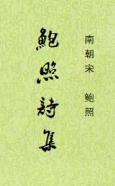 南朝宋 鲍照
鮑照詩集